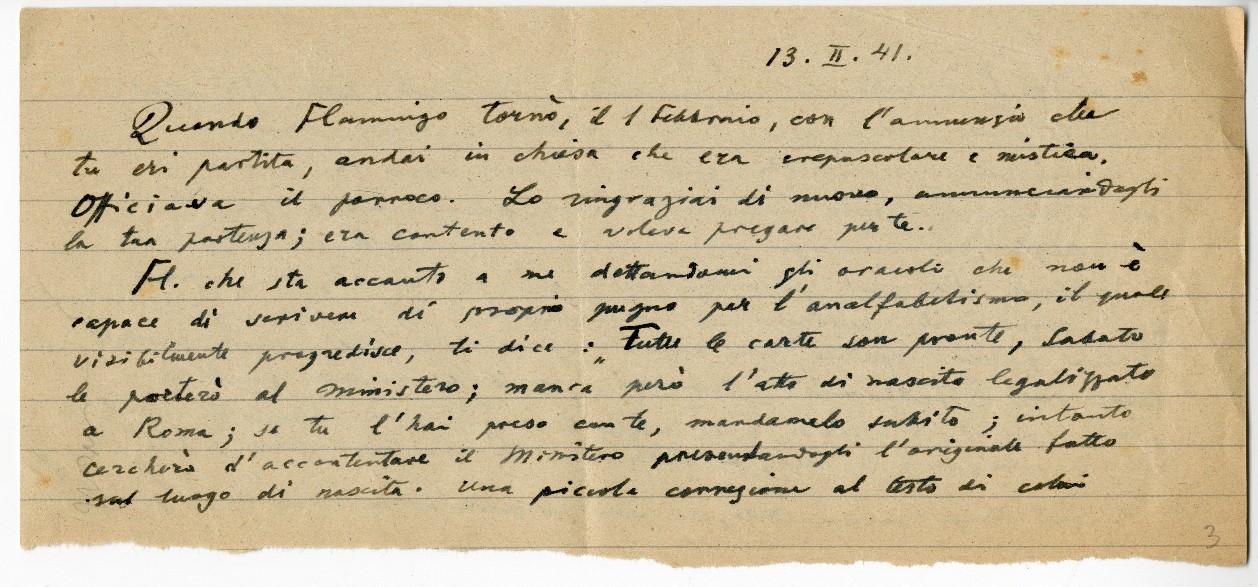 13. II. 41.
Quando Flamingo tornò, il 1 Febbraio, con l'annunzio che
tu eri partita, andai in chiesa che era crepuscolare e mistica.
Officiava il parroco. Lo ringraziai di nuovo, annunciandogli
la tua partenza; era contento e voleva pregare per te..
Fl. che sta accanto a me dettandomi gli oracoli che non è
capace di scrivere di proprio pugno per l'analfabetismo, il quale
visibilmente progredisce, ti dice: „Tutte le carte son pronte, Sabato
le porterò al Ministero; manca però l'atto di nascita legalizzato
a Roma; se tu l'hai preso con te, mandamelo subito; intanto
cercherò d'accontentare il Minitero presendandogli l'originale fatto
sul luogo di nascita. Una piccola corregione al testo di colui
3